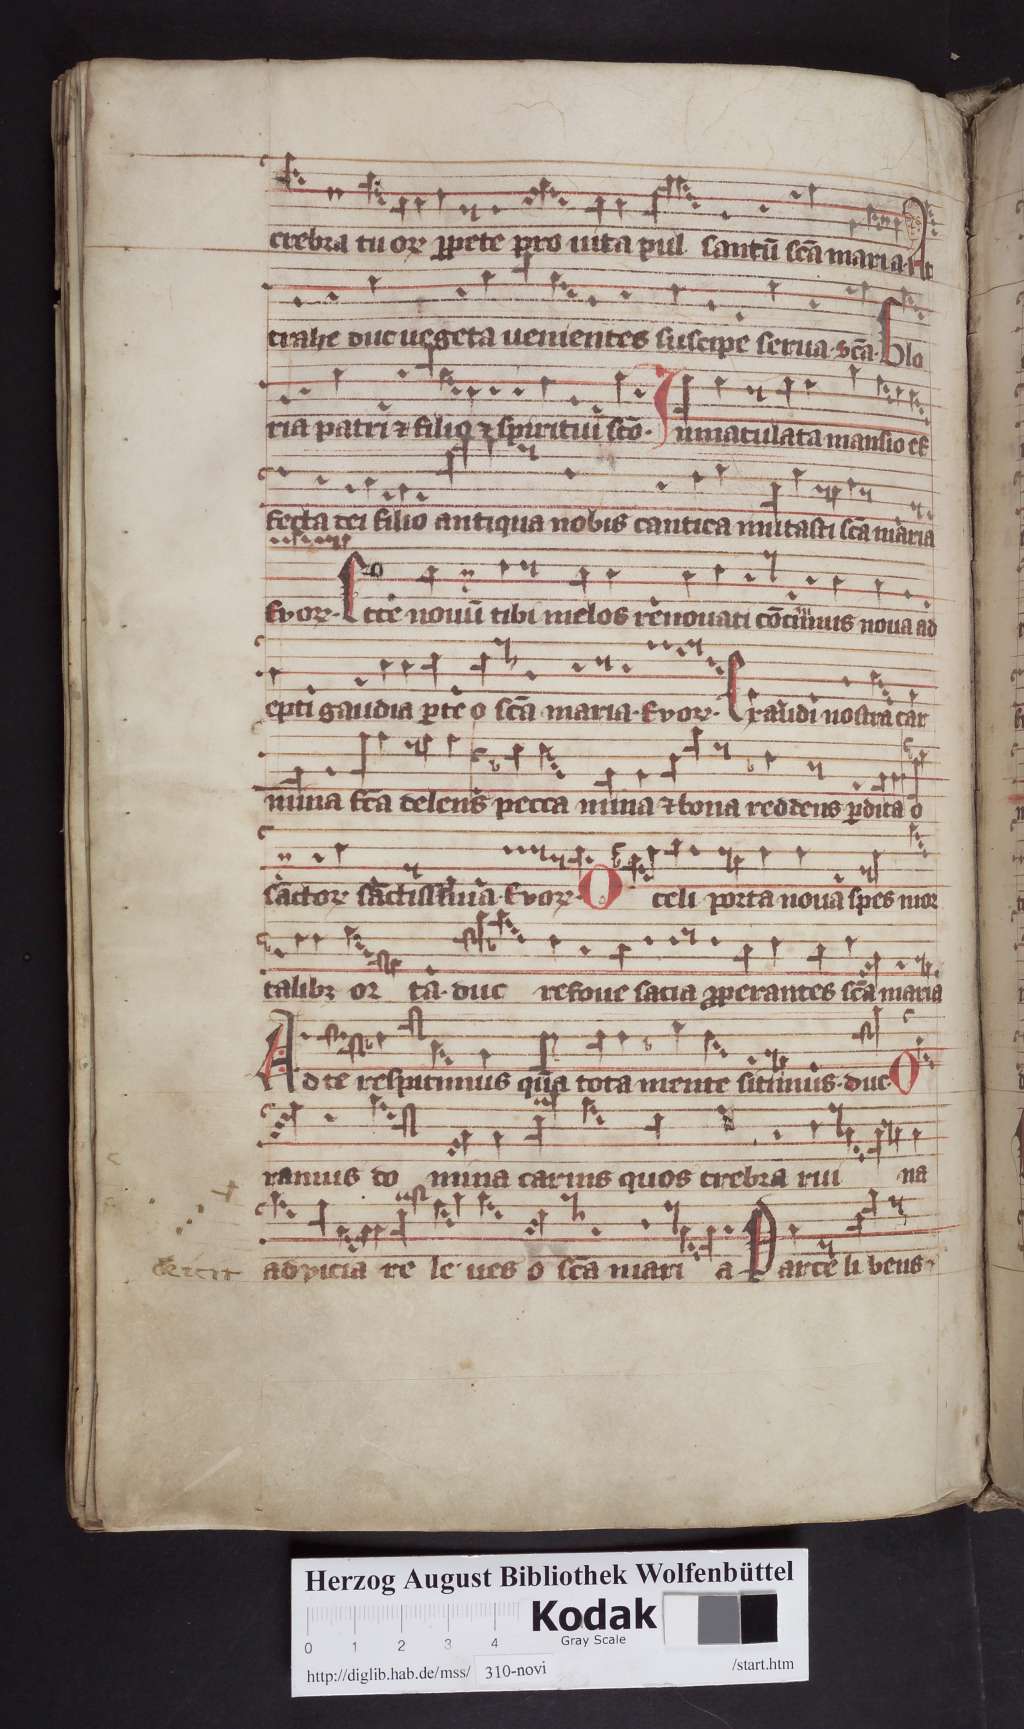 crebra tu or ꝓpete pro uita pul santū scā maria. At
trahe duc uegeta uenientes suscipe serua. scā. Glo
ria patri ⁊ filio ⁊ spiritui scō. Inmaculata mansio ef
fecta dei filio antiqua nobis cantica mutasti scā maria
Evoꝝ. Ecce nouū tibi melos renouati cōcinimus noua ad
epti gaudia ꝑ te o scā maria. Evoꝝ. Exaudi nostra car
mina scā delens pecca mina ⁊ bona reddens ꝑdita o
sāctoꝝ sāctissima. Evoꝝ. O celi porta noua spes mor
talibꝫ or ta. duc refoue sacia ꝓperantes scā maria
Ad te respicimus quā tota mente sitimus. duc. O
ramus do mina carius quos crebra rui na
ad vicia re le ues o scā mari a Parce li bens
Herzog August Bibliothek Wolfenbüttel
Kodak
Gray Scale
0 1 2 3 4
http://diglib.hab.de/mss/ 310-novi /start.htm